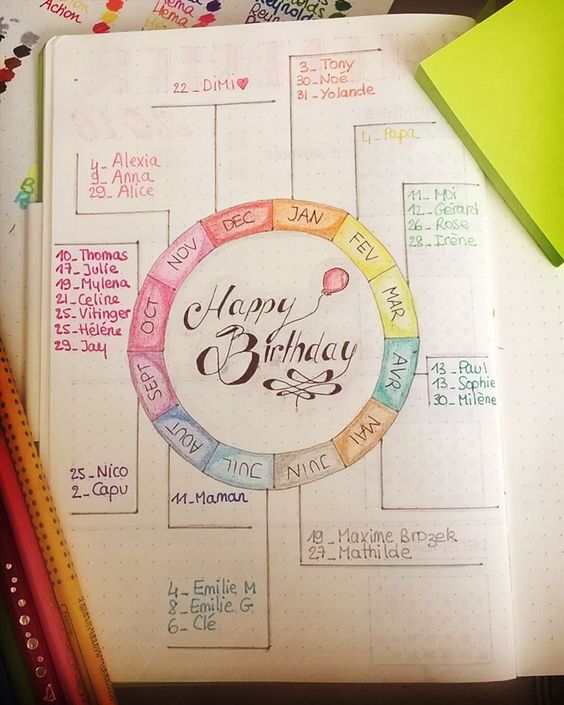 Action
Hema
Hema
Reynolds
Reynolds
22_DiMi♥
3_ Tony
30_Noé
31_Yolande
4_ Papa
4_ Alexia
9_ Anna
29_ Alice
11_ Moi
12_ Gérard
26_ Rose
28_ Irène
10_ Thomas
17_ Julie
19_ Mylena
21_ Celine
25_ Vitinger
25_ Hélène
29_ Jay
DEC
JAN
FEV
MAR
AVR
MAI
JUIN
JUIL
AOUT
SEPT
OCT
NOV
Happy
Birthday
13_ Paul
13_ Sophie
30_ Milène
25_ Nico
2_ Capu
11_Maman
19_ Maxime Brozek
27_ Mathilde
4_ Emilie M
8_ Emilie G
6_ Clé